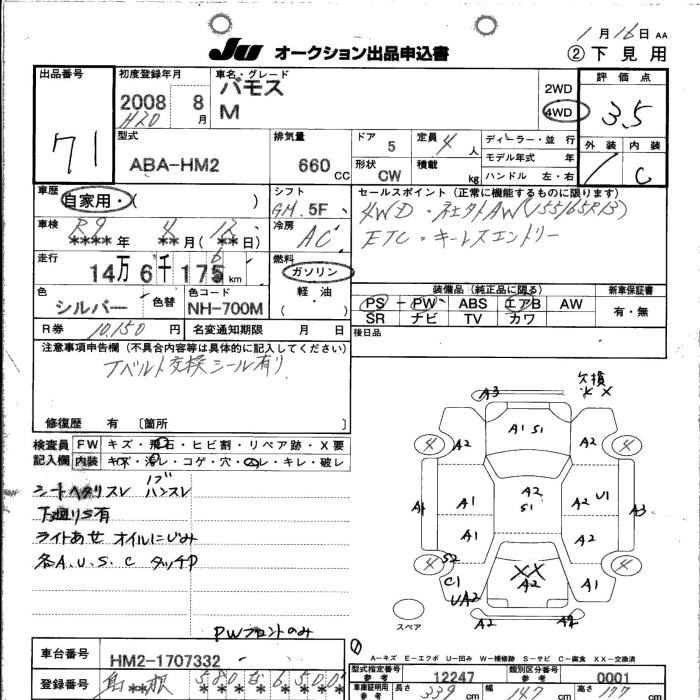 1月16日 AA
JU オークション出品申込書 ②下見用
出品番号 71
初度登録年月 2008 8月 H20
車名・グレード バモス M
2WD 4WD
評価点 3.5
外装 内装 C
型式 ABA-HM2
排気量 660 CC
ドア 5 定員 4人
形状 CW 積載 kg
ディーラー・並行
モデル年式 年
ハンドル 左・右
車歴 自家用・( )
シフト 5F
セールスポイント(正常に機能するものに限ります)
4WD・社外AW(155/65R13)
ETC・キーレスエントリー
車検 R9 **** 年 ** 月(** 日)
冷房 AC
走行 14万6千175 km
燃料 ガソリン 軽油 ( )
色 シルバー 色替 色コード NH-700M
装備品(純正品に限る) 新車保証書
PS PW ABS エアB AW 有・無
SR ナビ TV カワ
R券 10,150 円 名変通知期限 月 日
後日品
注意事項申告欄(不具合内容等は具体的に記入してください)
Tベルト交換シール有り
修復歴 有 [箇所 ]
検査員 FW キズ・飛石・ヒビ割・リペア跡・X要
記入欄 内装 キズ・汚レ・コゲ・穴・スレ・キレ・破レ
シートヘタリスレ ハンスレ
下廻りS有
ライトあせ オイルにじみ
各A.U.S.C タッチP
PWフロントのみ
A3 欠損 XX
4 A2 A1 S1 A2 4
A1 A2 S1 A2 U1 A3
A1 A2
4 S2 XX A2 A1 4
C1 UA2
A2
スペア
A-キズ E-エクボ U-凹み W-補修跡 S-サビ C-腐食 XX-交換済
車台番号 HM2-1707332
型式指定番号 参考 12247 類別区分番号 参考 0001
登録番号 島根
車庫証明用 参考 長さ 339 cm 幅 147 cm 高さ cm